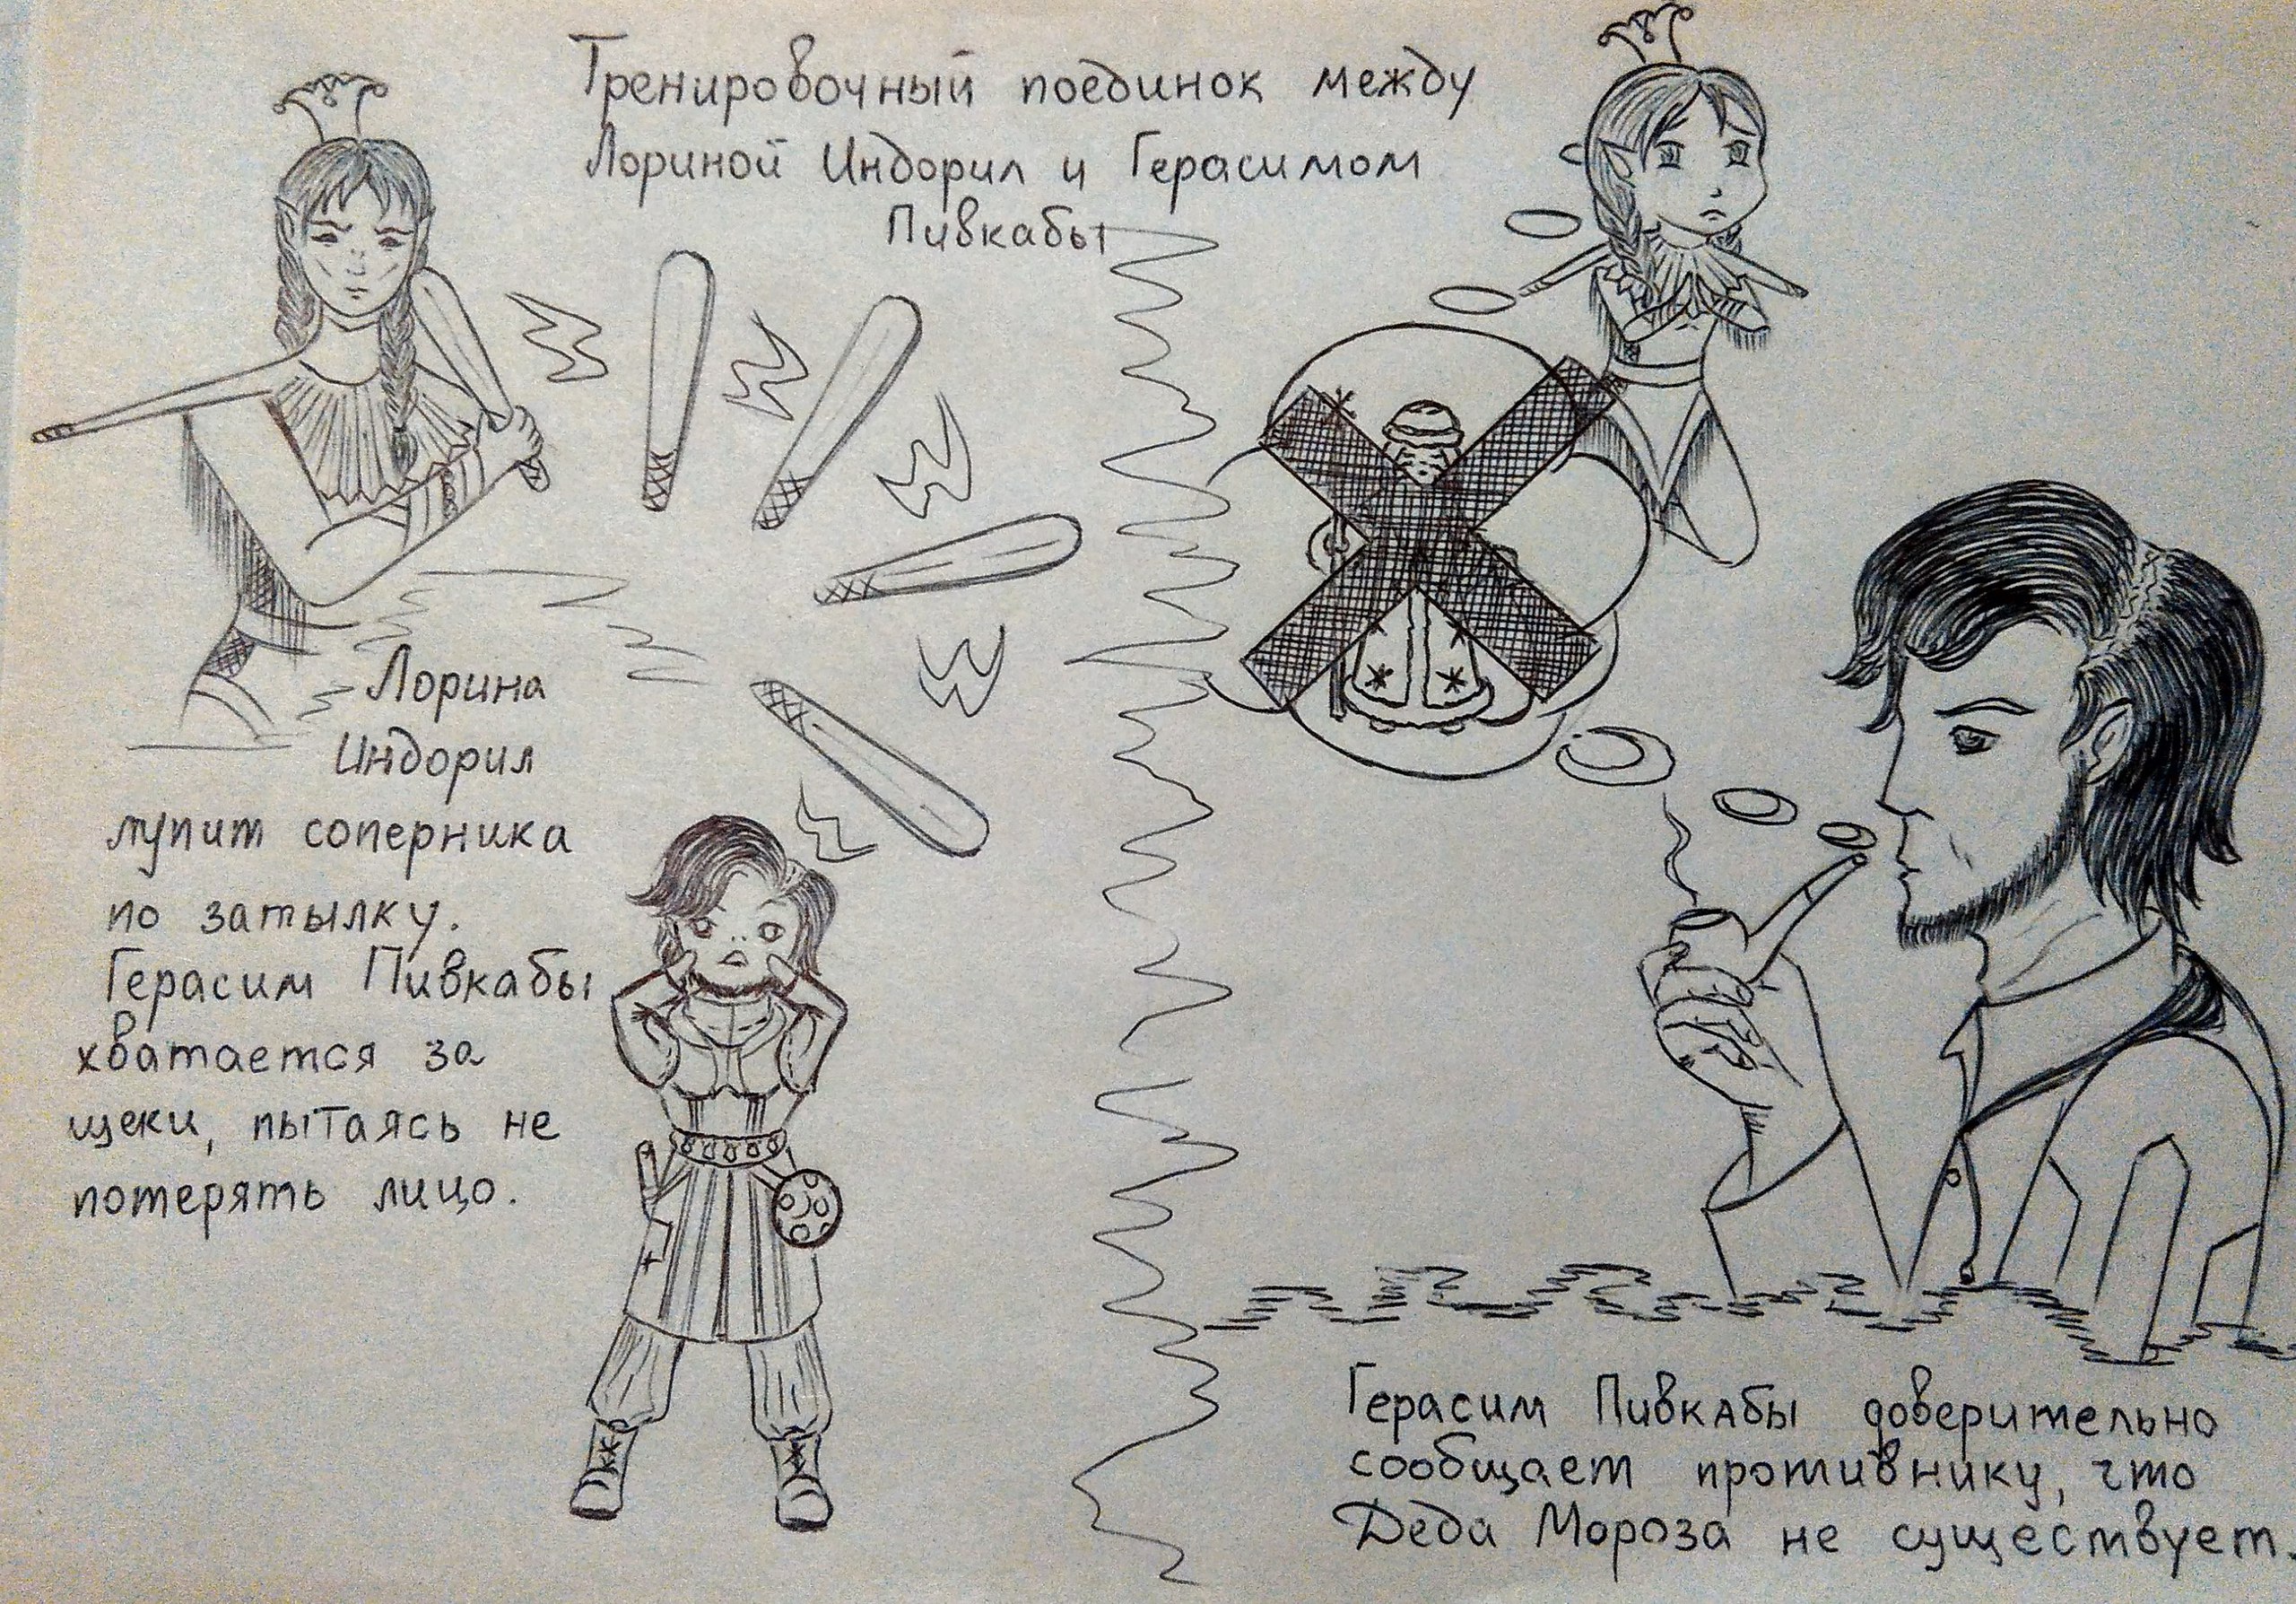 Тренировочный поединок между
Лориной Индорил и Герасимом
Пивкабы
Лорина
Индорил
лупит соперника
по затылку.
Герасим Пивкабы
хватается за
щеки, пытаясь не
потерять лицо.
Герасим Пивкабы доверительно
сообщает противнику, что
Деда Мороза не существует.